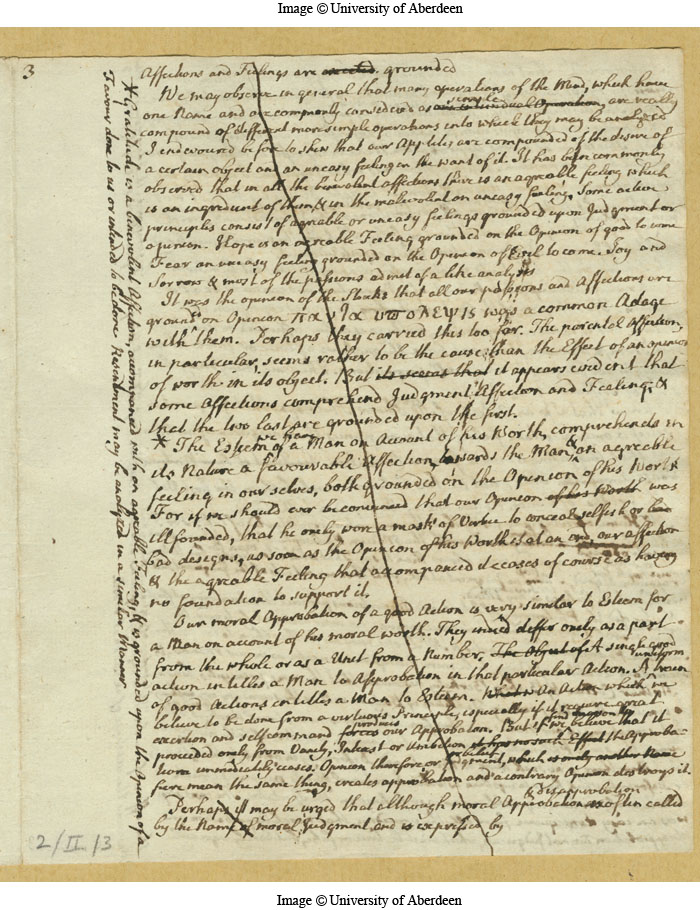 Image © University of Aberdeen
3
Affections and Feelings are excited. grounded
We may observe in general that many operations of the Mind, which have
one Name and are commonly considered as simple are really
compound of different more simple operations into which they may be analyzed
I endeavoured before to shew that our Appetites are compounded of the desire of
a certain object and an uneasy feeling in the want of it. It has been commonly
observed that in all the benevolent affections there is an agreeable feeling which
is an ingredient of them & in the malevolent an uneasy feeling. Some active
principles consist of agreable or uneasy feelings grounded upon Judgment or
opinion. Hope is an agreable Feeling grounded on the Opinion of good to come
Fear an uneasy feeling grounded on the Opinion of Evil to come. Joy and
Sorrow & most of the passions admit of a like analysis
It was the opinion of the Stoicks that all our passions and Affections are
ground on Opinion was a common Adage
with them. Perhaps they carried this too far. The parental Affection,
in particular, seems rather to be the cause than the Effect of an opinion
of worth in its object. But it seems that it appears evident that
some Affections comprehend Judgment Affection and Feeling; &
that the two last are grounded upon the first.
* The Esteem we have of a Man on Account of his Worth, comprehends in
its Nature a favourable Affection towards the Man & an agreable
feeling in our selves, both grounded on the Opinion of his Worth
For if we should ever be convinced that our Opinion of his Worth was
ill founded, that he only wore a mask of Virtue to conceal selfish or
bad designs, as soon as the Opinion of his Worth is at an end, our affection
& the agreable Feeling that accompanied it ceases of course as having
no foundation to support it.
Our moral Approbation of a good Action is very similar to Esteem for
a Man on account of his moral worth. They indeed differ onely as a part
from the whole or as a Unit from a Number, The Object of A single good
action intitles a Man to Approbation in that particular Action. A uniform
of good Actions intitles a Man to Esteem. An Action which we
believe to be done from a virtuous Principle, especially if it require great
exertion and self command produces forces our Approbation. But if we believe that it
proceeded only from Vanity, Interest or Ambition it has no such Effect the Approba-
tion immediatly ceases. Opinion therefore or Judgment, which is onely another Name
here mean the same thing, creates approbation and a contrary Opinion destroys it.
Perhaps it may be urged that although moral Approbation & disapprobation is often called
by the Name of moral Judgment and is expressed by
* Gratitude is a benevolent Affection, accompanied with an agreable Feeling, & is grounded upon the Opinion of a
Favour done to us or intended to be done. Resentment may be analyzed in a similar Manner
2/II/3
Image © University of Aberdeen